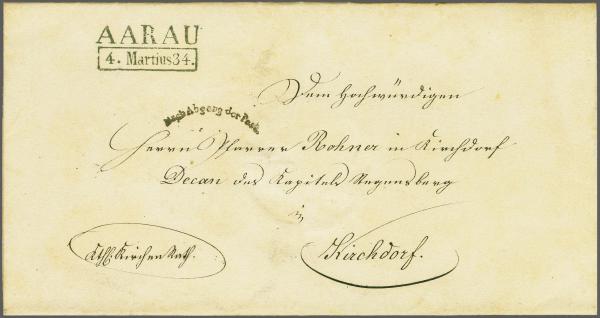 AARAU
4. Martius 34.
Nach Abgang der Post.
Dem Hochwürdigen
Herrn Pfarrer Rohner in Kirchdorf
Decan des Kapitels Regensberg
in
Kirchdorf.
Kath. Kirchen Rath.